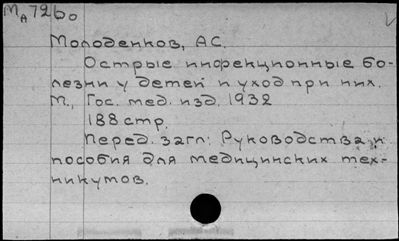 Mₐ726о
Молоденков, АС.
Острые инфекционные бо-
лезни у детей и уход при них.
М., Гос. мед. изд. 1932
188 стр.
Перед. загл: Руководства и
пособия для медицинских тех-
никумов.